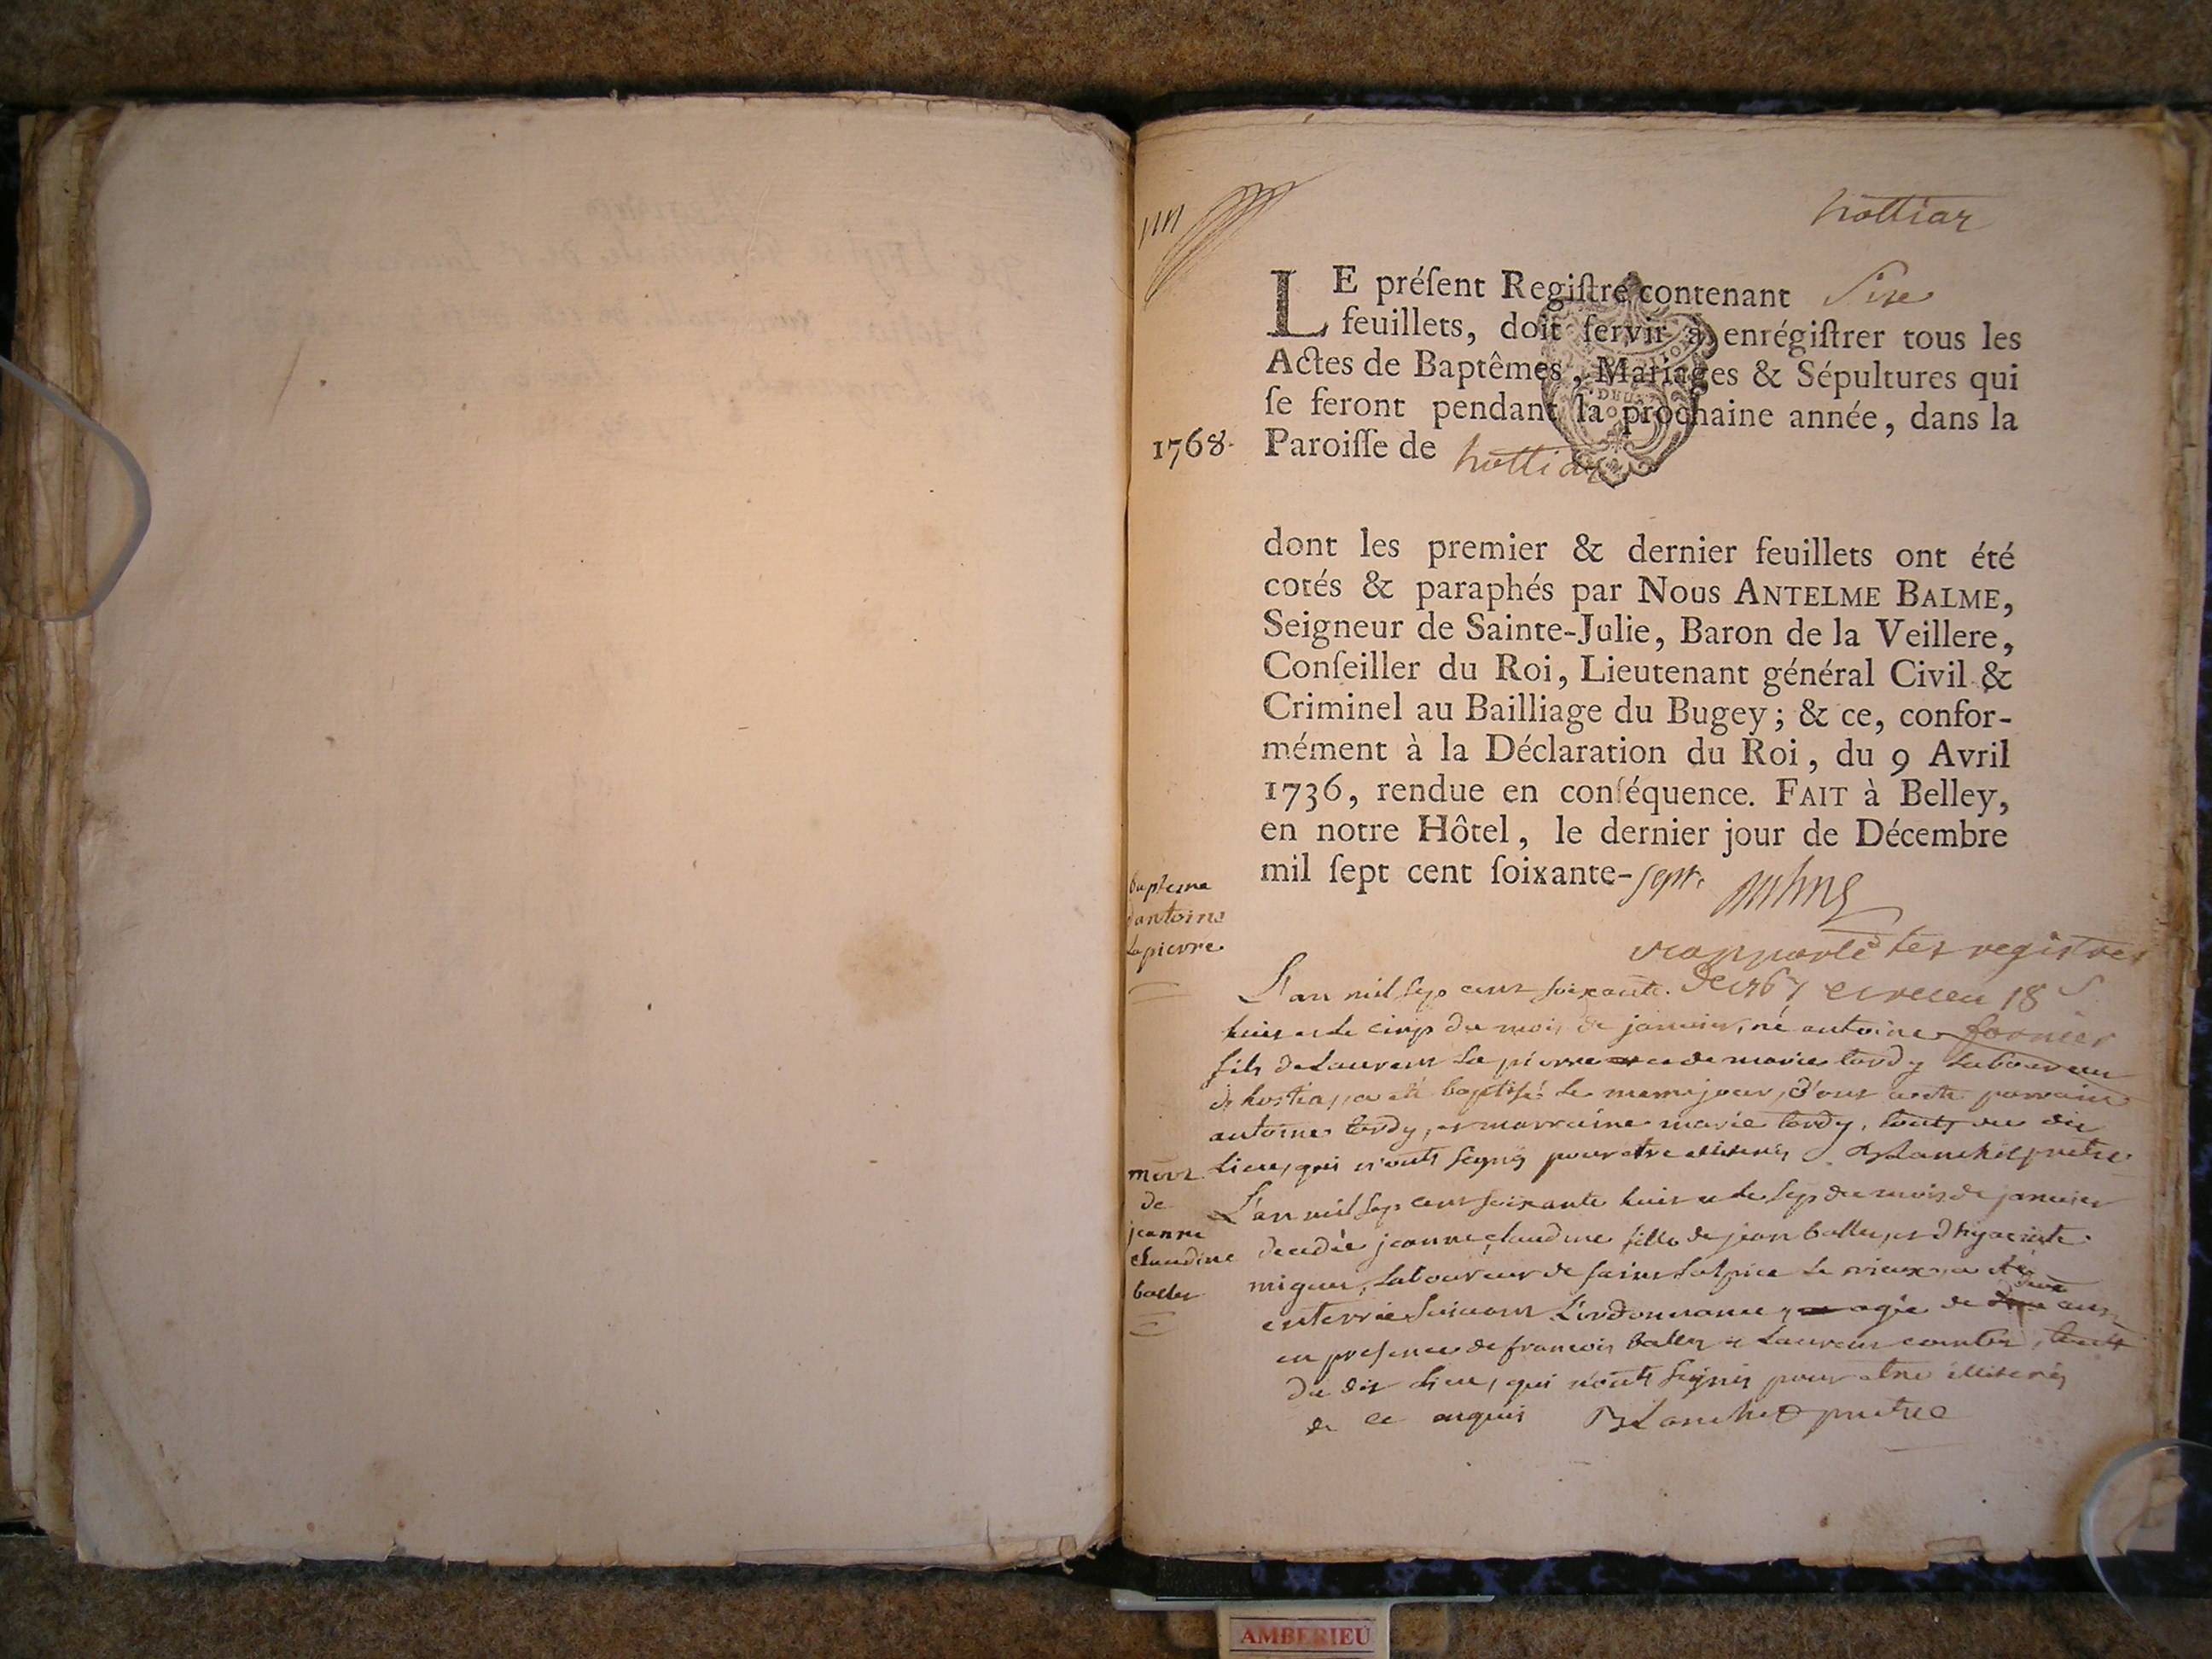 hottiar
LE préſent Regiſtre contenant Six
feuillets, doit ſervir à enrégiſtrer tous les
Actes de Baptêmes, Mariages & Sépultures qui
ſe feront pendant la prochaine année, dans la
1768. Paroiſſe de hottiar
dont les premier & dernier feuillets ont été
cotés & paraphés par Nous ANTELME BALME,
Seigneur de Sainte-Julie, Baron de la Veillere,
Conſeiller du Roi, Lieutenant général Civil &
Criminel au Bailliage du Bugey; & ce, confor-
mément à la Déclaration du Roi, du 9 Avril
1736, rendue en conſéquence. FAIT à Belley,
en notre Hôtel, le dernier jour de Décembre
mil ſept cent ſoixante-sept.
bapteme
dantoine
lapierre
rapporté les registres
de 1767 et receu 18 s
fornier
L'an mil sep cent soixante
huit et le cinq du mois de janvier, né antoine
fils de Laurent La pierre et de marie tardy Laboureur
de hostia, a été baptisé le meme jour, parrain
antoine tardy, et marraine marie tardy, touts du dit
Lieu, qui n'ont signés pour etre illiterés Blanchet pretre
mort
de
jeanne
claudine
ballet
L'an mil sep cent soixante huit et le sep du mois de janvier
decedée jeanne claudine fille de jean ballet, et d'hyacinte
miguet, Laboureur de saint sulpice le vieux, a été
enterrée suivant L'ordonnance, agée de deux ans
en presence de francois ballet et Laurent, touts
du dit Lieu, qui n'ont signés pour etre illiterés
de ce enquis Blanchet pretre
AMBERIEU